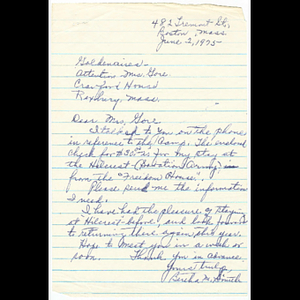 482 Tremont St.,
Boston, Mass.
June 2, 1975-
Goldenaires-
Attention Mrs. Gore.
Crawford House
Roxbury, Mass.
Dear Mrs. Gore
I talked to you on the phone
in reference to the Camp. The enclosed
check for $30 is for my stay at
the Hilcrest (Salvation Army) is
from the "Freedom House".
Please send me the information
I need.
I have had the pleasure of staying
at Hilcrest before, and look forward
to returning there again this year.
Hope to meet you in a week or
soon. Thank you in advance.
Yours truly,
Bertha M. Smith